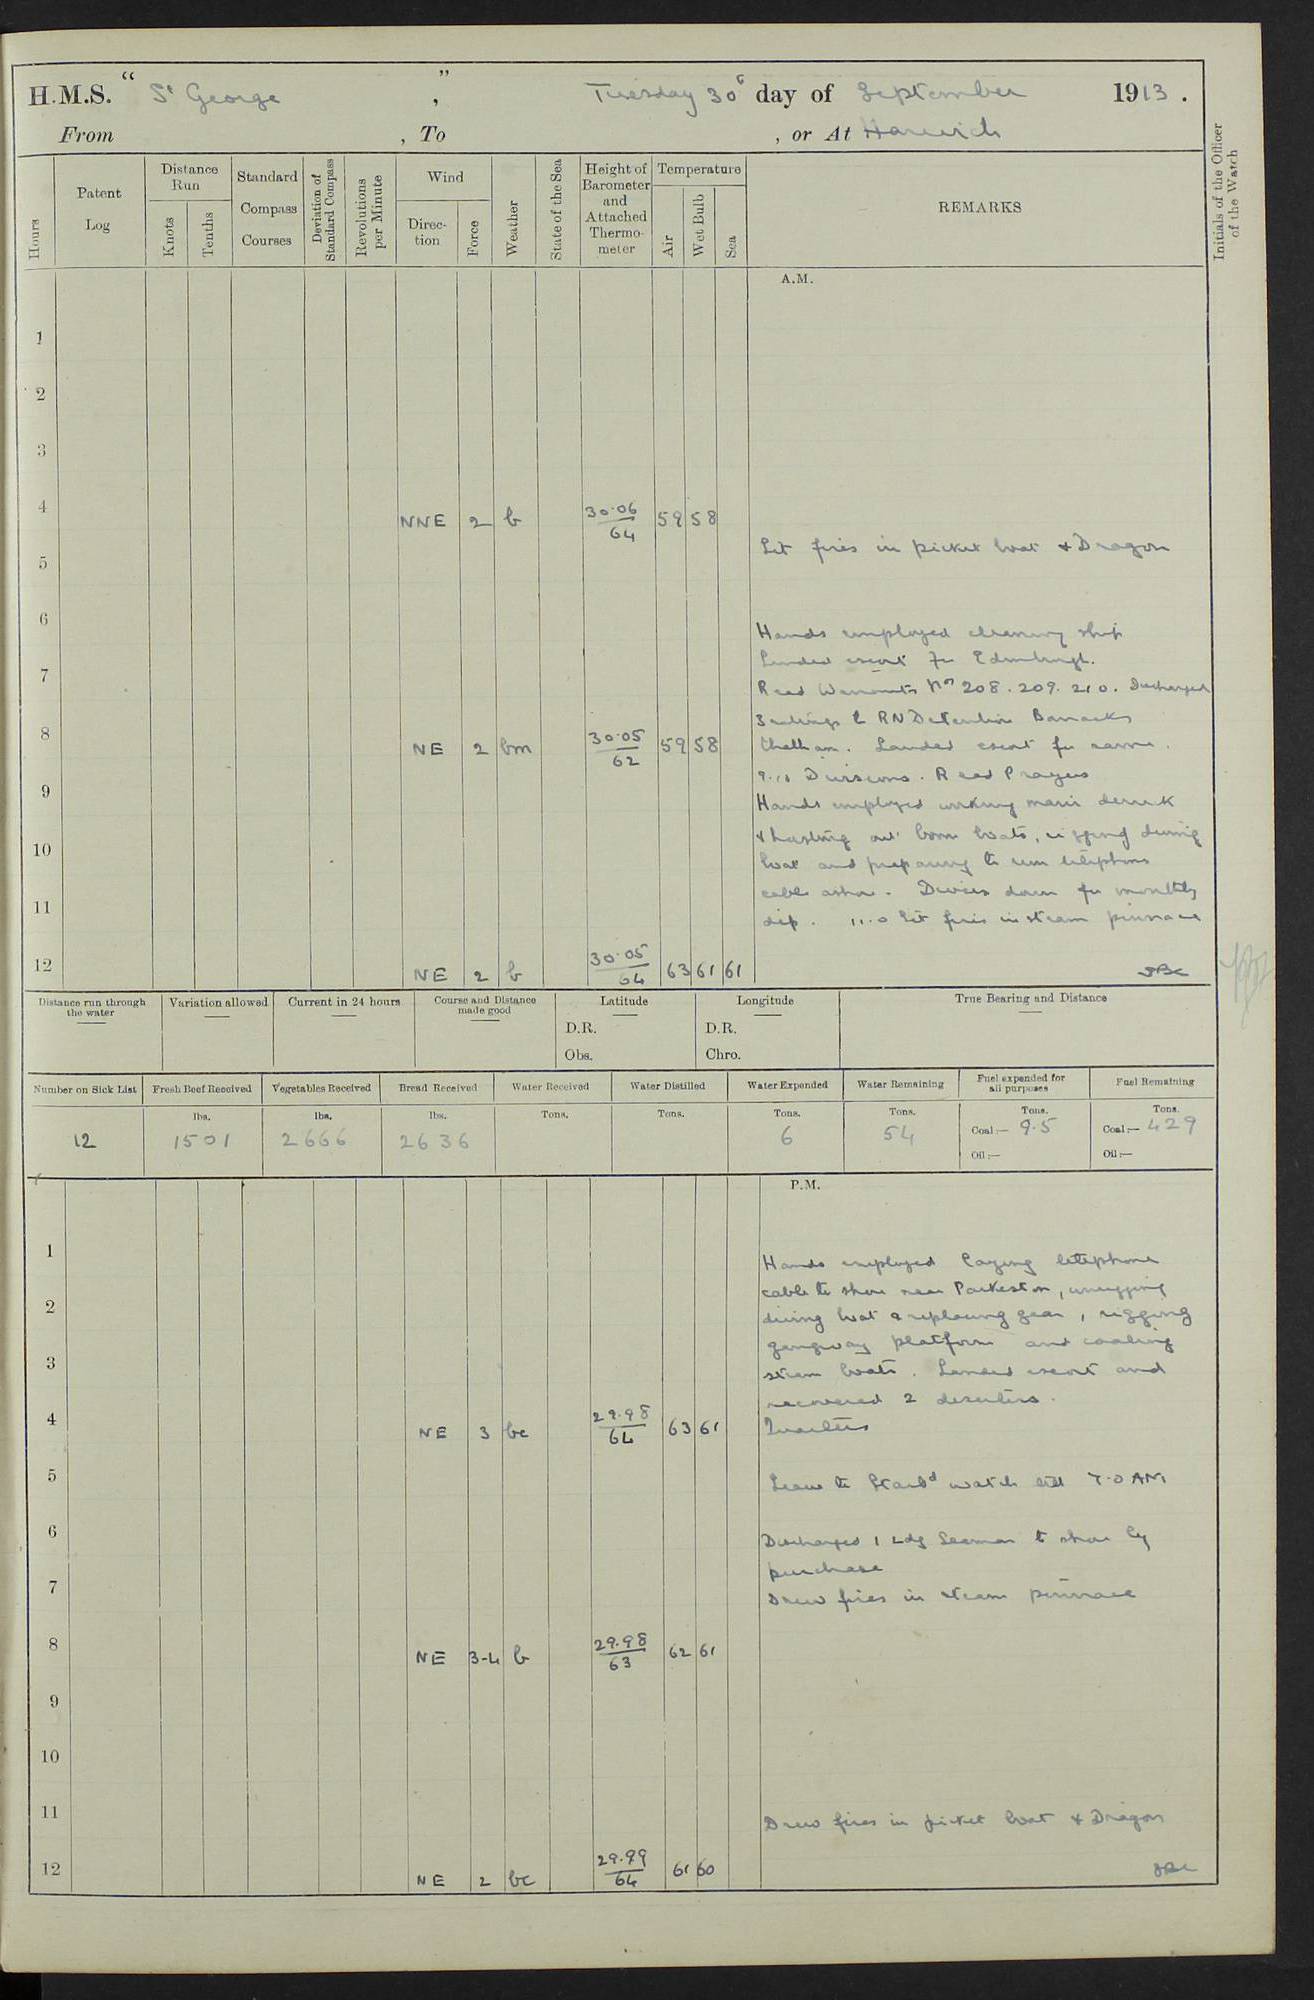 H.M.S. " St George ", Tuesday 30th day of September 1913.
From , To , or At Harwich
Hours
Patent Log
Distance Run
Knots
Tenths
Standard Compass Courses
Deviation of Standard Compass
Revolutions per Minute
Wind
Direction
Force
Weather
State of the Sea
Height of Barometer and Attached Thermometer
Temperature
Air
Wet Bulb
Sea
REMARKS
Initials of the Officer of the Watch
A.M.
1
2
3
4 NNE 2 b 30.06/64 59 58
Lit fires in picket boat & Dragon
5
6
Hands employed cleaning ship
Landed escort for Edinburgh.
7
Read Warrants Nos 208. 209. 210. Discharged
3 ratings to RN Detention Barracks
8 NE 2 bm 30.05/62 59 58
Chatham. Landed escort for same.
9.10 Divisions. Read Prayers
9
Hands employed working main derrick
& hoisting out boom boats, rigging diving
10
boat and preparing to run telephone
cable ashore. Divers down for monthly
11
dip. 11.0 Lit fires in steam pinnace
12 NE 2 b 30.05/64 63 61 61
Distance run through the water
Variation allowed
Current in 24 hours
Course and Distance made good
Latitude
D.R.
Obs.
Longitude
D.R.
Chro.
True Bearing and Distance
Number on Sick List
Fresh Beef Received
Vegetables Received
Bread Received
Water Received
Water Distilled
Water Expended
Water Remaining
Fuel expended for all purposes
Fuel Remaining
12
lbs. 1501
lbs. 2666
lbs. 2636
Tons.
Tons.
Tons. 6
Tons. 54
Tons. Coal:— 9.5
Oil:—
Tons. Coal:— 429
Oil:—
P.M.
1
Hands employed laying telephone
cable to shore near Parkeston, unrigging
2
diving boat & replacing gear, rigging
gangway platform and coaling
3
steam boats. Landed escort and
recovered 2 deserters.
4 NE 3 bc 29.98/64 63 61
Quarters
5
Leave to Starbd watch till 7.0 AM
6
Discharged 1 Ldg Seaman to shore by
purchase
7
Drew fires in steam pinnace
8 NE 3-4 b 29.98/63 62 61
9
10
11
Drew fires in picket boat & Dragon
12 NE 2 bc 29.99/64 61 60